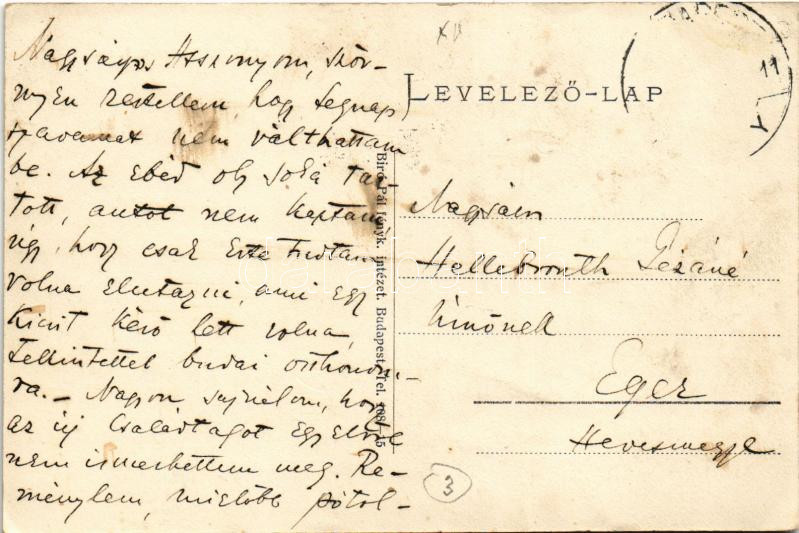 Nagyságos Asszonyom, ször-
nyen restellem, hogy tegnap
szavamat nem válthattam
be. Az ebéd oly soká tar-
tott, autót nem kaptam
úgy, hogy csak este tudtam
volna elutazni, ami egy
kicsit késő lett volna,
tekintettel budai otthonom-
ra. – Nagyon sajnálom, hogy
az új családtagot egyelőre
nem ismerhettem meg. Re-
ménylem, mielőbb pótol-
XII
LEVELEZŐ-LAP
11
Biró Pál fényk. intézet. Budapest. Tel.
Nagysám
Hellebronth Gézáné
Úrnőnek
Eger
Hevesmegye
3